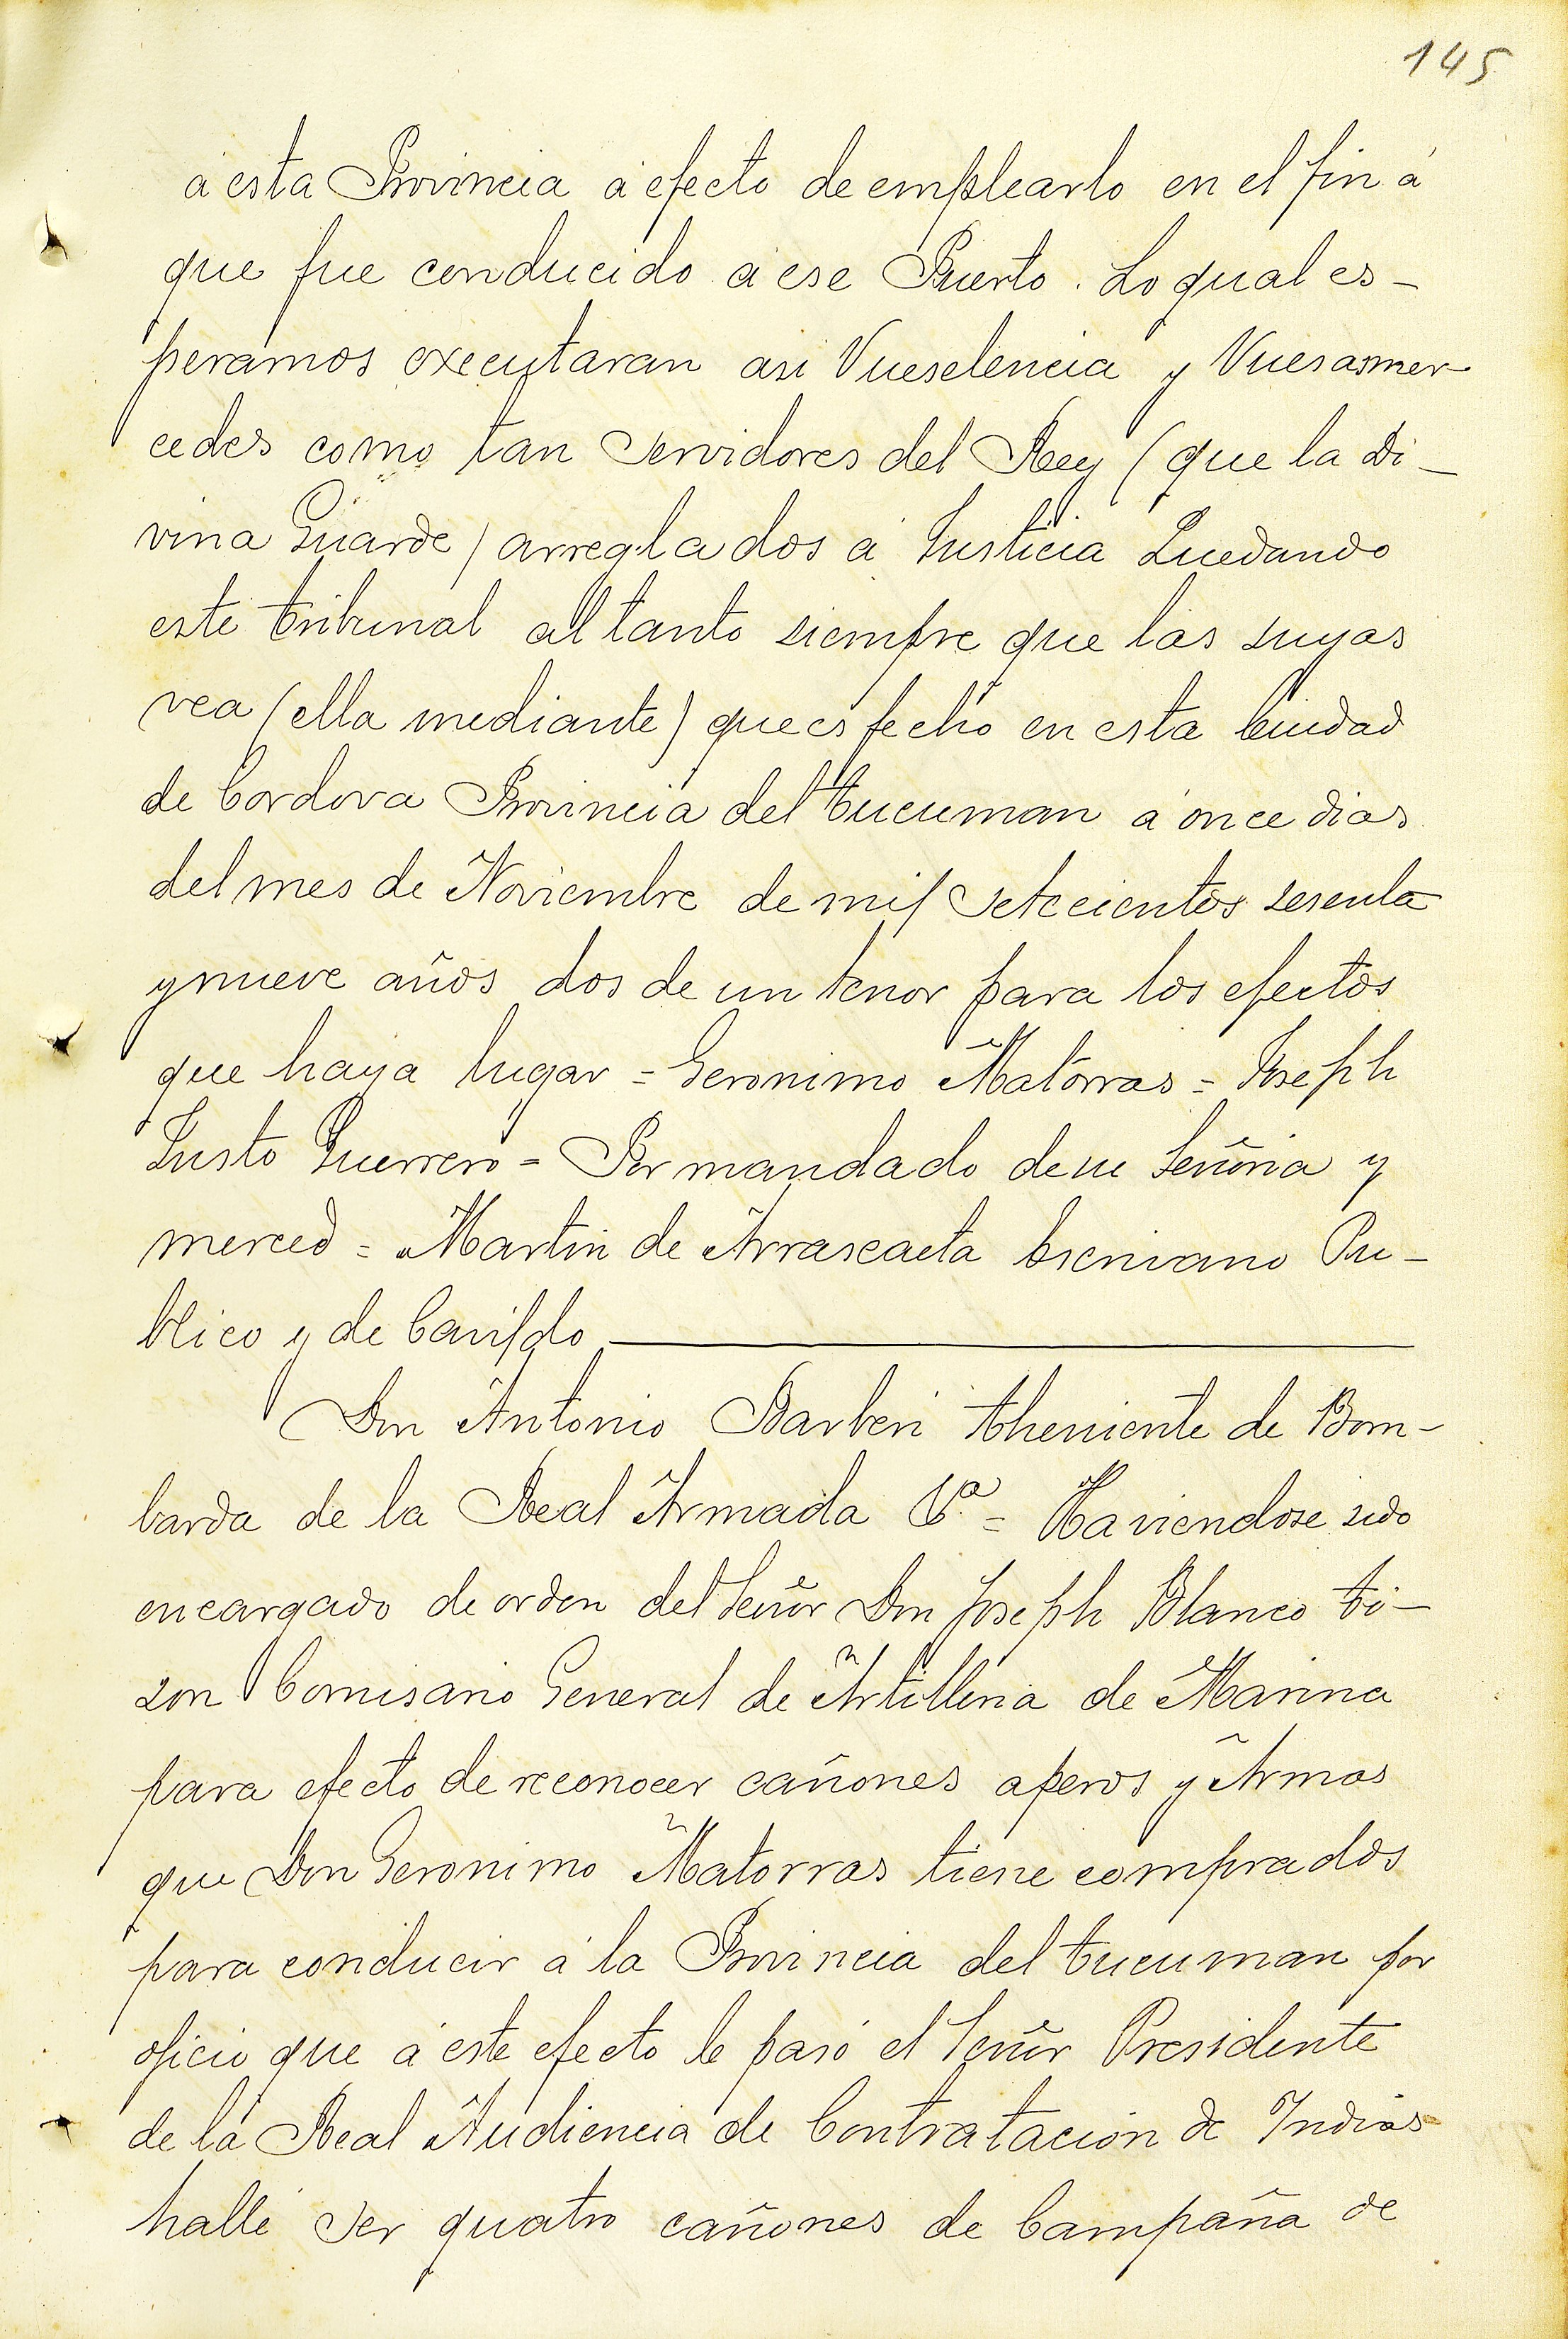 145
á esta Provincia á efecto de emplearlo en el fin á
que fue conducido á ese Puerto. Lo qual es-
peramos executaran asi Vueselencia y Vuesasmer-
cedes como tan Servidores del Rey (que la Di-
vina Guarde) arreglados á Justicia Quedando
este tribunal al tanto siempre que las suyas
vea (ella mediante) que es fecho en esta Ciudad
de Cordova Provincia del tucuman á once dias
del mes de Noviembre de mil Setecientos sesenta
y nueve años dos de un tenor para los efectos
que haya lugar = Geronimo Matorras = Joseph
Justo Guerrero = Por mandado de su Señoria y
merced = Martin de Arrascaeta Escrivano Pu-
blico y de Cavildo
Don Antonio Barberi theniente de Bom-
barda de la Real Armada &ª = Haviendose sido
encargado de orden del Señor Don Joseph Blanco ti-
zon Comisario General de Artilleria de Marina
para efecto de reconocer cañones aperos y Armas
que Don Geronimo Matorras tiene comprados
para conducir á la Provincia del tucuman por
oficio que á este efecto le pasó el Señor Presidente
de la Real Audiencia de Contratacion de Indias
hallé Ser quatro cañones de Campaña de